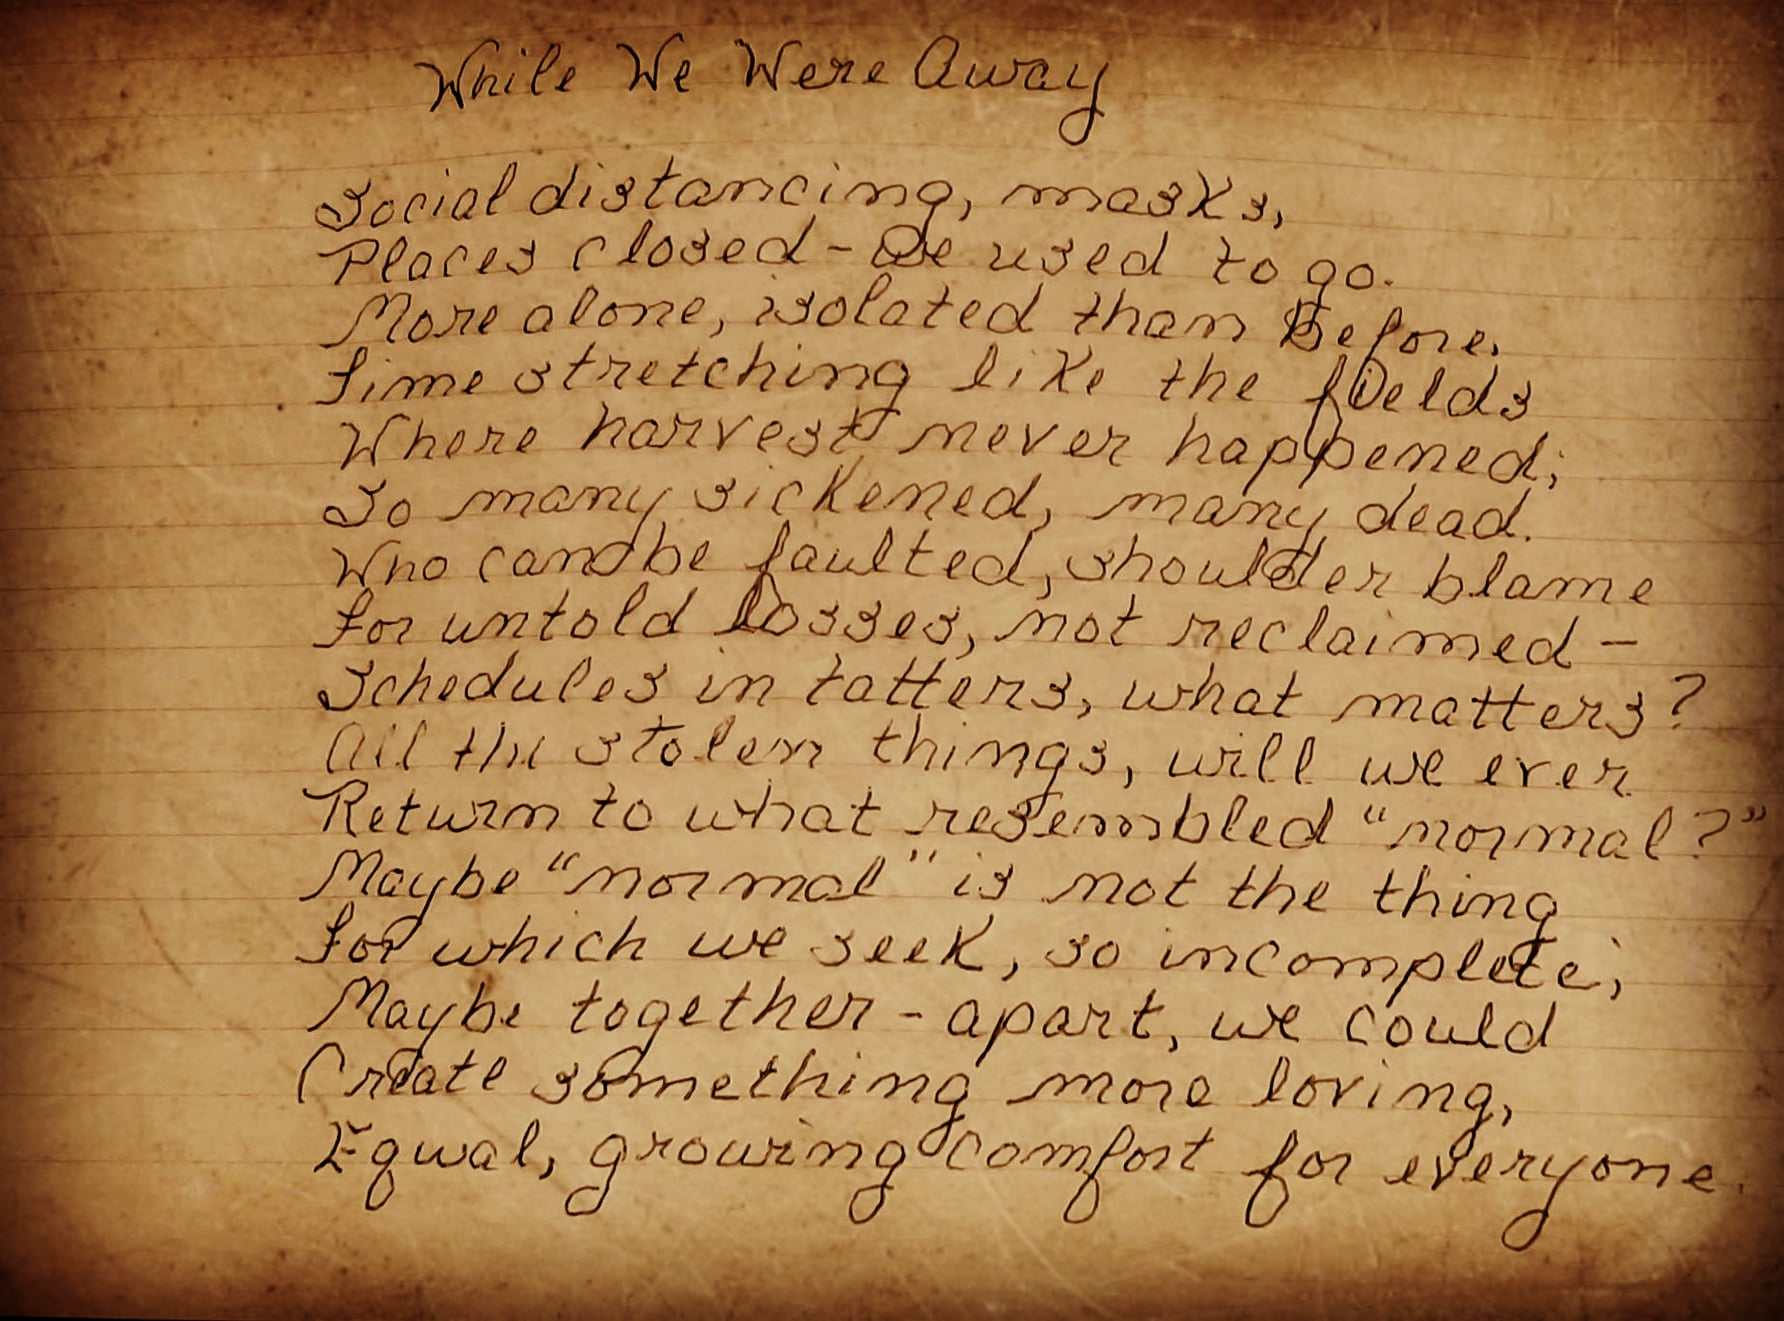 While We Were Away
Social distancing, masks,
Places closed - We used to go.
More alone, isolated than Before.
Time stretching like the fields
Where harvest never happened;
So many sickened, many dead.
Who can be faulted, shoulder blame
For untold losses, not reclaimed -
Schedules in tatters, what matters?
All the stolen things, will we ever
Return to what resembled "normal?"
Maybe "normal" is not the thing
For which we seek, so incomplete;
Maybe together - apart, we could
Create something more loving,
Equal, growing comfort for everyone.